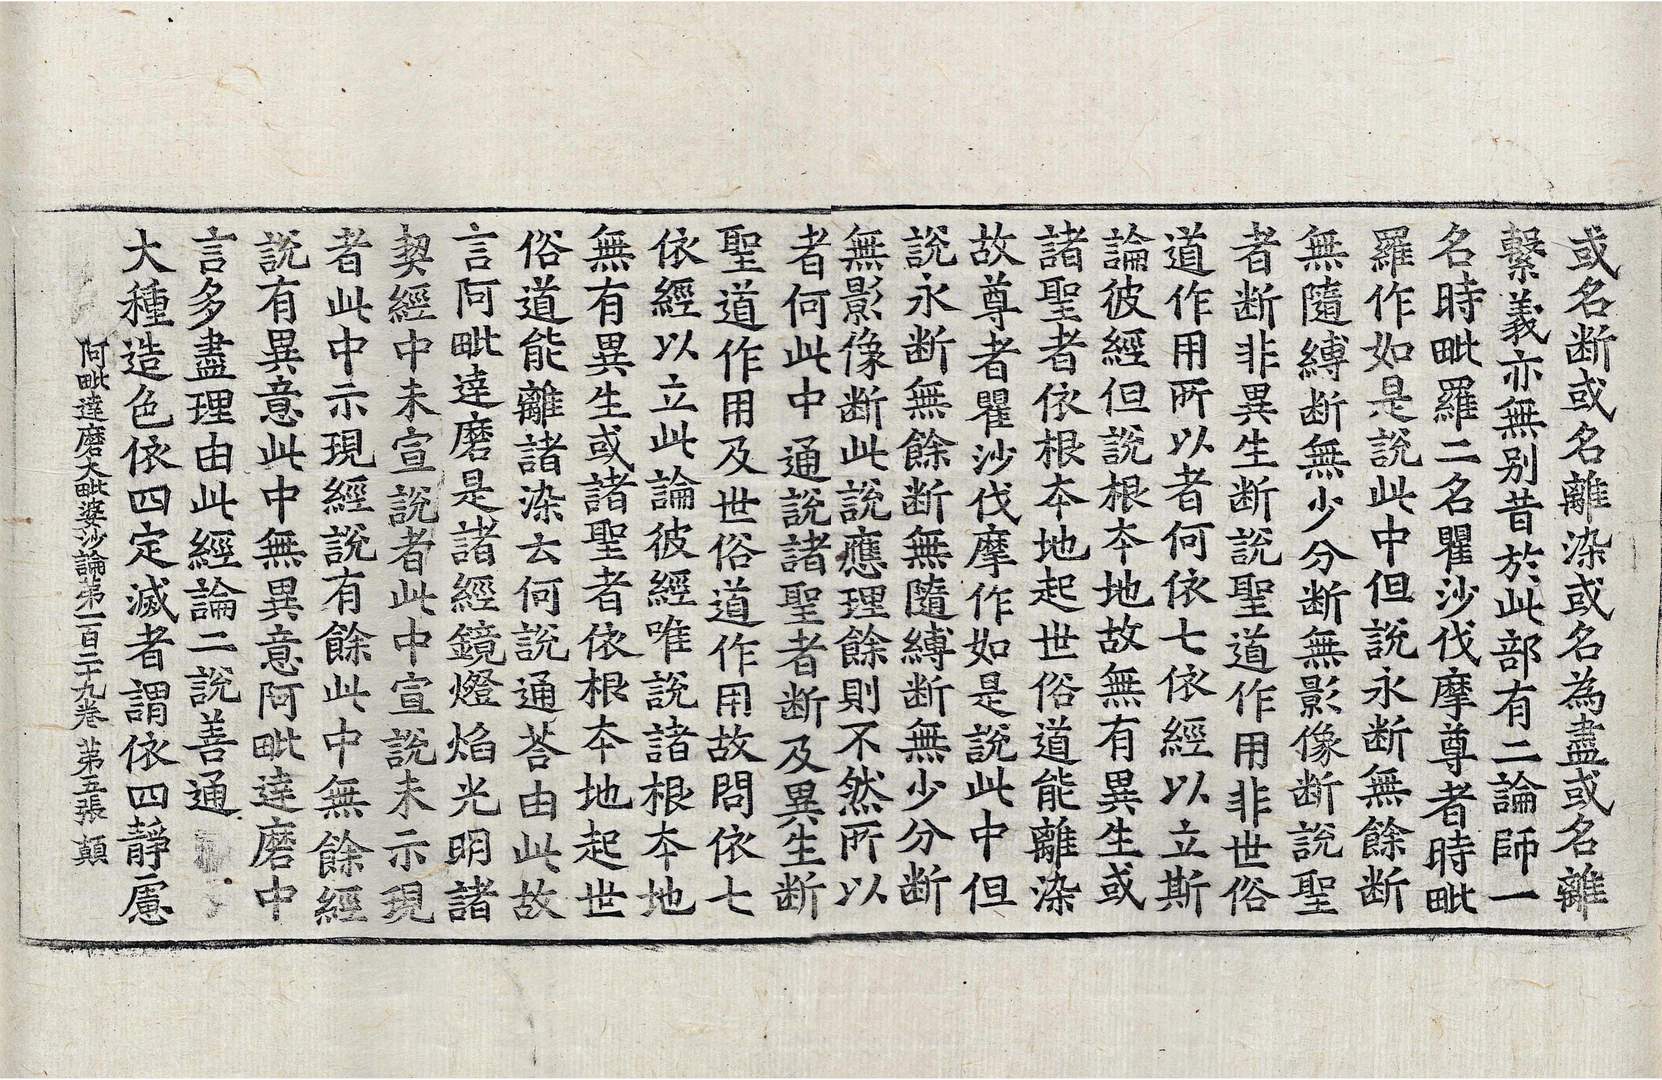 或名断或名離染或名為盡或名離
繫義亦無别昔於此部有二論師一
名時毗羅二名瞿沙伐摩尊者時毗
羅作如是說此中但說永断無餘断
無隨縛断無少分断無影像断說聖
者断非異生断說聖道作用非世俗
道作用所以者何依七依經以立斯
論彼經但說根本地故無有異生或
諸聖者依根本地起世俗道能離染
故尊者瞿沙伐摩作如是說此中但
說永断無餘断無隨縛断無少分断
無影像断此說應理餘則不然所以
者何此中通說諸聖者断及異生断
聖道作用及世俗道作用故問依七
依經以立此論彼經唯說諸根本地
無有異生或諸聖者依根本地起世
俗道能離諸染云何說通荅由此故
言阿毗達磨是諸經鏡燈焰光明諸
契經中未宣說者此中宣說未示現
者此中示現經說有餘此中無餘經
說有異意此中無異意阿毗達磨中
言多盡理由此經論二說善通
大種造色依四定滅者謂依四靜慮
阿毗達磨大毗婆沙論苐一百二十九卷 苐五張 顛